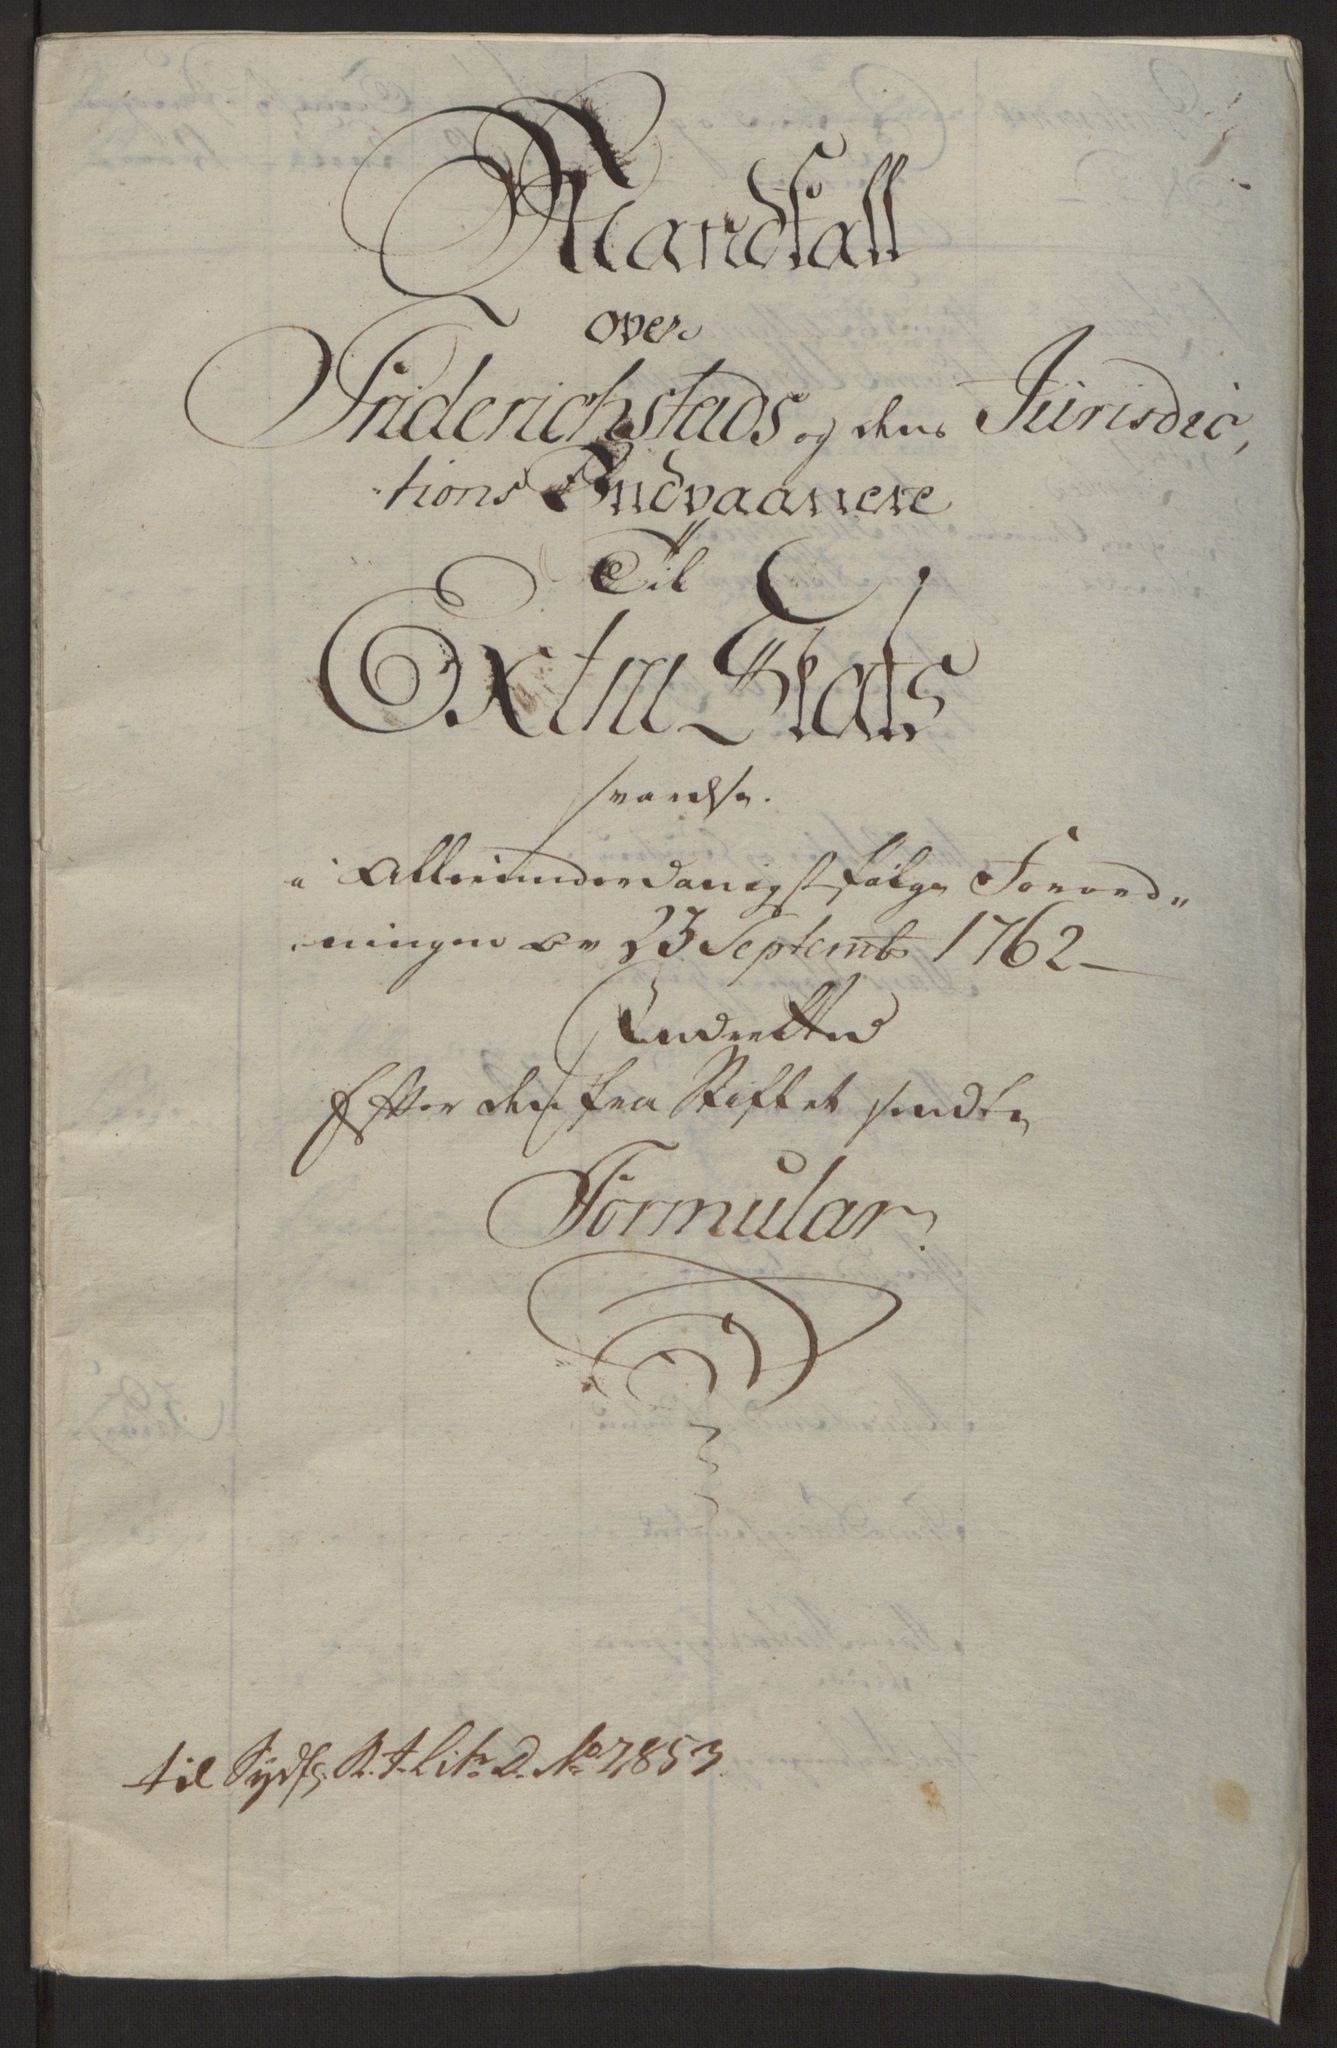 Mandtall
over
Friderichstads og dens Jurisdic,
tions Indvaanere
Til
Extra Skats
svarelse.
i Allerunderdanigst følge Forord„
ningen av 23 Septembr 1762
Indrettet
Efter den fra Stiftet sendte
Formular.
til Sydfs. R. t. Litr. D. No 7853.